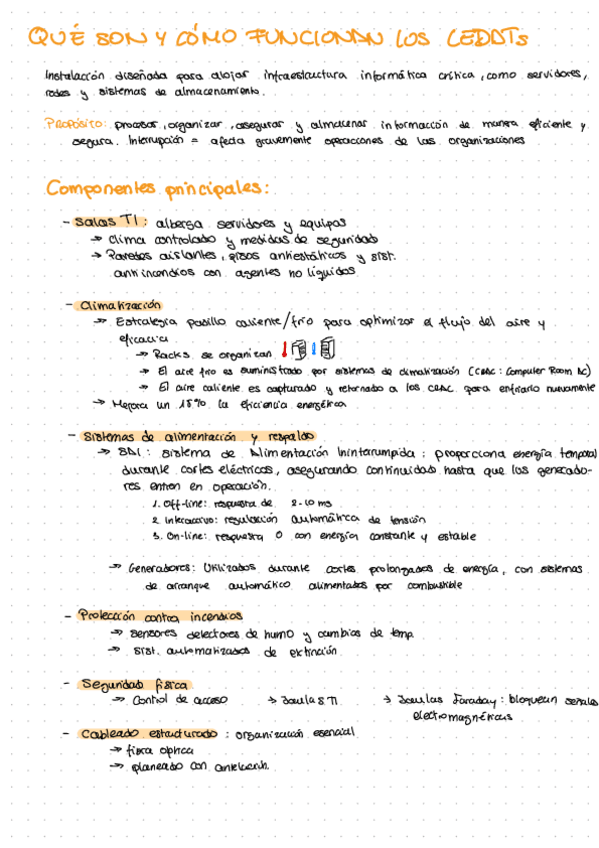 QUÉ SON Y CÓMO FUNCIONAN LOS CEDDTs
Instalacción diseñada para alojar infraestructura informática crítica, como servidores,
redes y sistemas de almacenamiento.
PROPÓSITO: procesar, organizar, asegurar y almacenar informacción de manera eficiente y
segura. Interrupción = afecta gravemente operaciones de las organizaciones
Componentes principales:
- Salas TI: alberga servidores y equipos
→ Clima controlado y medidas de seguridad
→ Paredes aislantes, pisos antiestáticos y sist.
antiincendios con agentes no líquidos
- Climatización
→ Estrategia pasillo caliente/frío para optimizar el flujo del aire y
eficacia
→ Racks se organizan
→ El aire frío es suministrado por sistemas de climatización (CRAC: Computer Room AC)
→ El aire caliente es capturado y retornado a los CRAC para enfriarlo nuevamente
→ Mejora un 15% la eficiencia energética
- Sistemas de alimentación y respaldo
→ SAI: Sistema de Alimentación Ininterrumpida: proporciona energía temporal
durante cortes eléctricos, asegurando continuidad hasta que los generado-
res entren en operación.
1. Off-line: respuesta de 2-10 ms
2. Interactivo: regulación automática de tensión
3. On-line: respuesta 0 con energía constante y estable
→ Generadores: Utilizados durante cortes prolongados de energía, con sistemas
de arranque automático alimentados por combustible
- Protección contra incendios
→ Sensores detectores de humo y cambios de temp.
→ Sist. automatizados de extinción
- Seguridad física
→ Control de acceso → Jaulas TI → Jaulas Faraday: bloquean señales
electromagnéticas
- Cableado estructurado: organización esencial
→ fibra óptica
→ planeado con antelación.